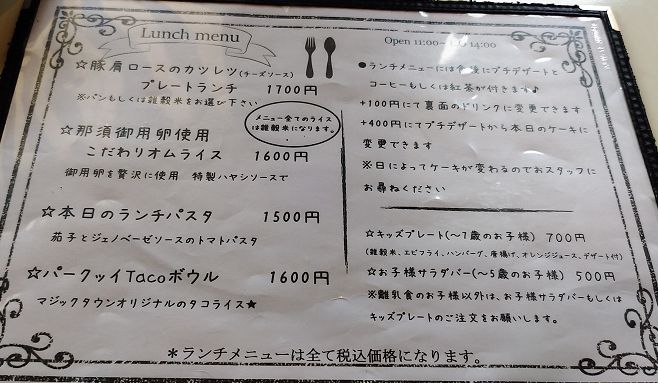 Lunch menu
☆豚肩ロースのカツレツ(チーズソース)
プレートランチ 1700円
※パンもしくは雑穀米をお選び下さい
メニュー全てのライス
は雑穀米になります。
☆那須御用卵使用
こだわりオムライス 1600円
御用卵を贅沢に使用 特製ハヤシソースで
☆本日のランチパスタ 1500円
茄子とジェノベーゼソースのトマトパスタ
☆パークッイTacoボウル 1600円
マジックタウンオリジナルのタコライス★
Open 11:00～LO 14:00
●ランチメニューには食後にプチデザートと
コーヒーもしくは紅茶が付きます♪
+100円にて裏面のドリンクに変更できます
+400円にてプチデザートから本日のケーキに
変更できます
※日によってケーキが変わるのでお スタッフに
お尋ねください
☆キッズプレート(～7歳のお子様) 700円
(雑穀米、エビフライ、ハンバーグ、唐揚げ、オレンジジュース、デザート付)
☆お子様サラダバー(～5歳のお子様) 500円
※離乳食のお子様以外は、お子様サラダバーもしくは
キッズプレートのご注文をお願いします。
＊ランチメニューは全て税込価格になります。